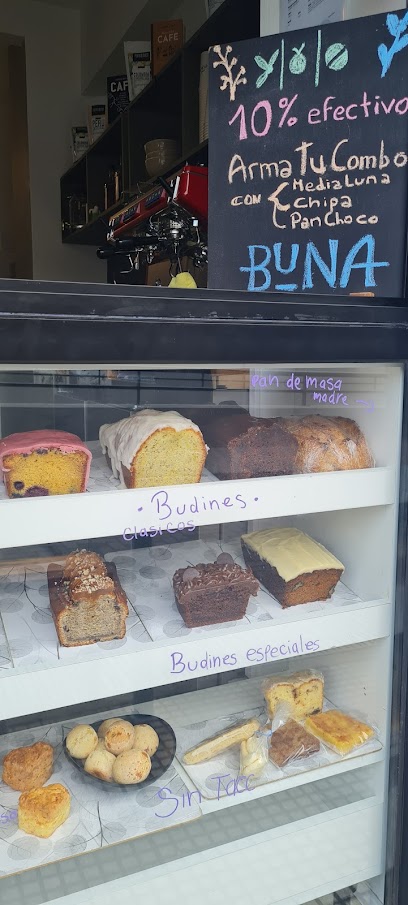 CAFE
CAFE
10% efectivo
Arma Tu Combo
con { Media Luna
Chipa
Pan Choco
BUNA
Pan de masa
madre
• Budines •
Clasicos
Budines especiales
Sin Tacc